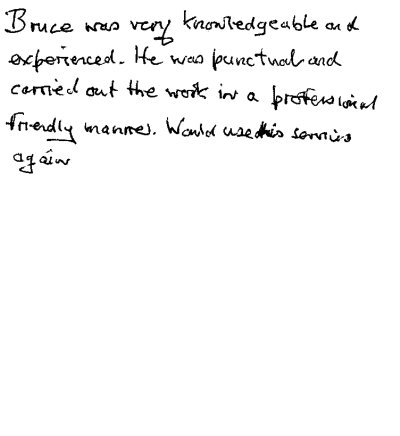 Bruce was very knowledgeable and
experienced. He was punctual and
carried out the work in a professional
friendly manner. Would use this services
again